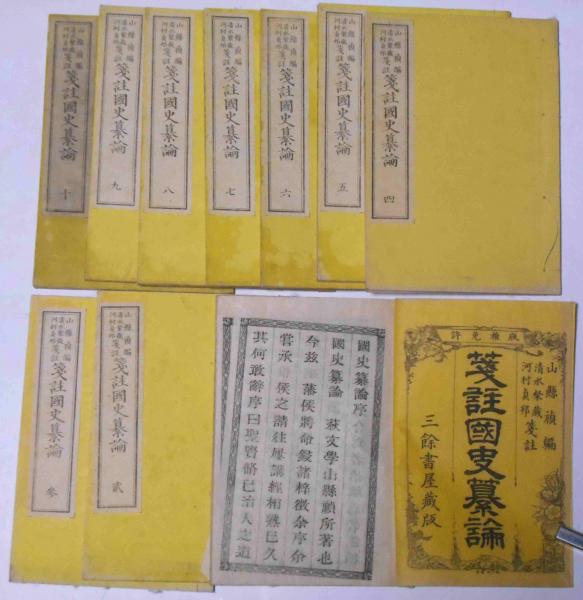 山縣禎編
清水粲藏
河村貞邦
箋註國史纂論
四
山縣禎編
清水粲藏
河村貞邦
箋註國史纂論
五
山縣禎編
清水粲藏
河村貞邦
箋註國史纂論
六
山縣禎編
清水粲藏
河村貞邦
箋註國史纂論
七
山縣禎編
清水粲藏
河村貞邦
箋註國史纂論
八
山縣禎編
清水粲藏
河村貞邦
箋註國史纂論
九
山縣禎編
清水粲藏
河村貞邦
箋註國史纂論
十
版權免許
山縣禎編
清水粲藏
河村貞邦
箋註
箋註國史纂論
三餘書屋藏版
國史纂論序
國史纂論 萩文學山縣禎所著也
今茲 藩侯將命鋟諸梓徵余序余
嘗承 侯之請往屡講經相熟已久
其何敢辭序曰聖賢脩已治人之道
山縣禎編
清水粲藏
河村貞邦
箋註國史纂論
貳
山縣禎編
清水粲藏
河村貞邦
箋註國史纂論
參